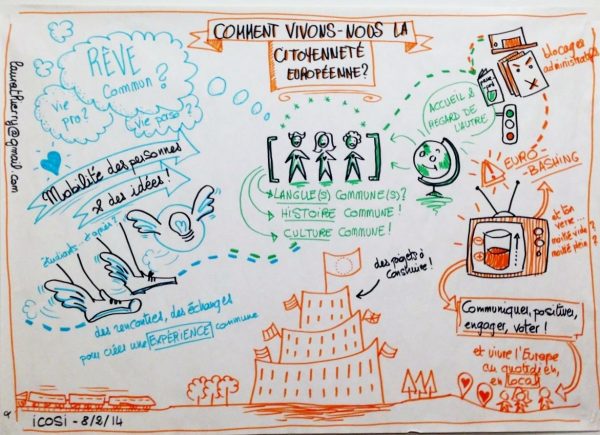 COMMENT VIVONS-NOUS LA
CITOYENNETÉ
EUROPÉENNE?
laurethierry@gmail.com
RÊVE
Commun?
vie
pro?
vie passo?
Mobilité des personnes
& des idées!
étudiants
et après?
des rencontres, des échanges
pour créer une EXPÉRIENCE commune
LANGUE(S) COMMUNE(S)?
HISTOIRE COMMUNE!
CULTURE COMMUNE!
ACCUEIL &
REGARD DE
L'AUTRE
blocages
administratifs
EURO
-BASHING
et ton
verre...
moitié vide?
moitié plein?
des projets à
construire!
Communiquer, positiver,
engager, voter!
et vivre l'Europe
au quotidien,
en local
iCOSi - 8/2/14